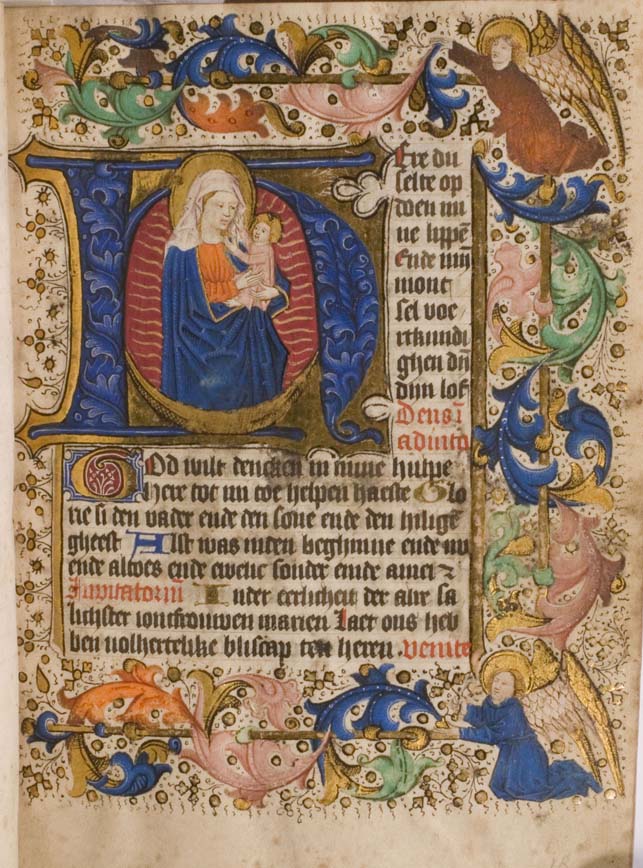 Ere du
selte op
doen mi
ne lippẽ
Ende mijn
mont
sel voe
rtkundi
ghen dẽ
dijn lof
Deus ĩ
adiuto
God wilt dencken in mine hulpe
here tot mi toe helpen haeste Glo
rie si den vader ende den sone ende den hiligẽ
gheest Alst was inden beghinne ende nu
ende altoes ende ewelic sonder einde amen
Inuitatoriũ In der eerlicheit der alre sa
lichster ioncfrouwen marien Laet ons heb
ben volhertelike bliscap ten heren venite